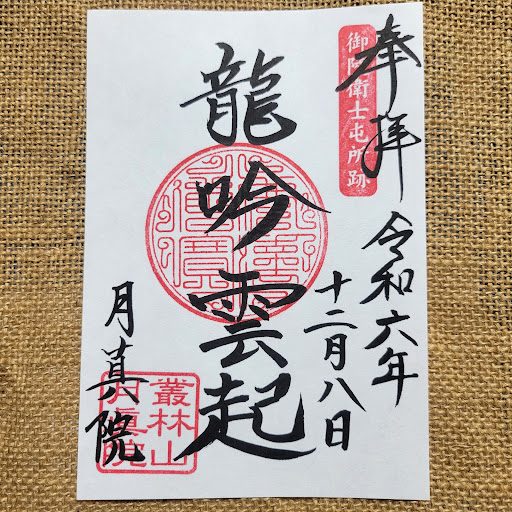 奉拝
御陵衛士屯所跡
令和六年
十二月八日
龍吟雲起
月真院
叢林山
月眞院